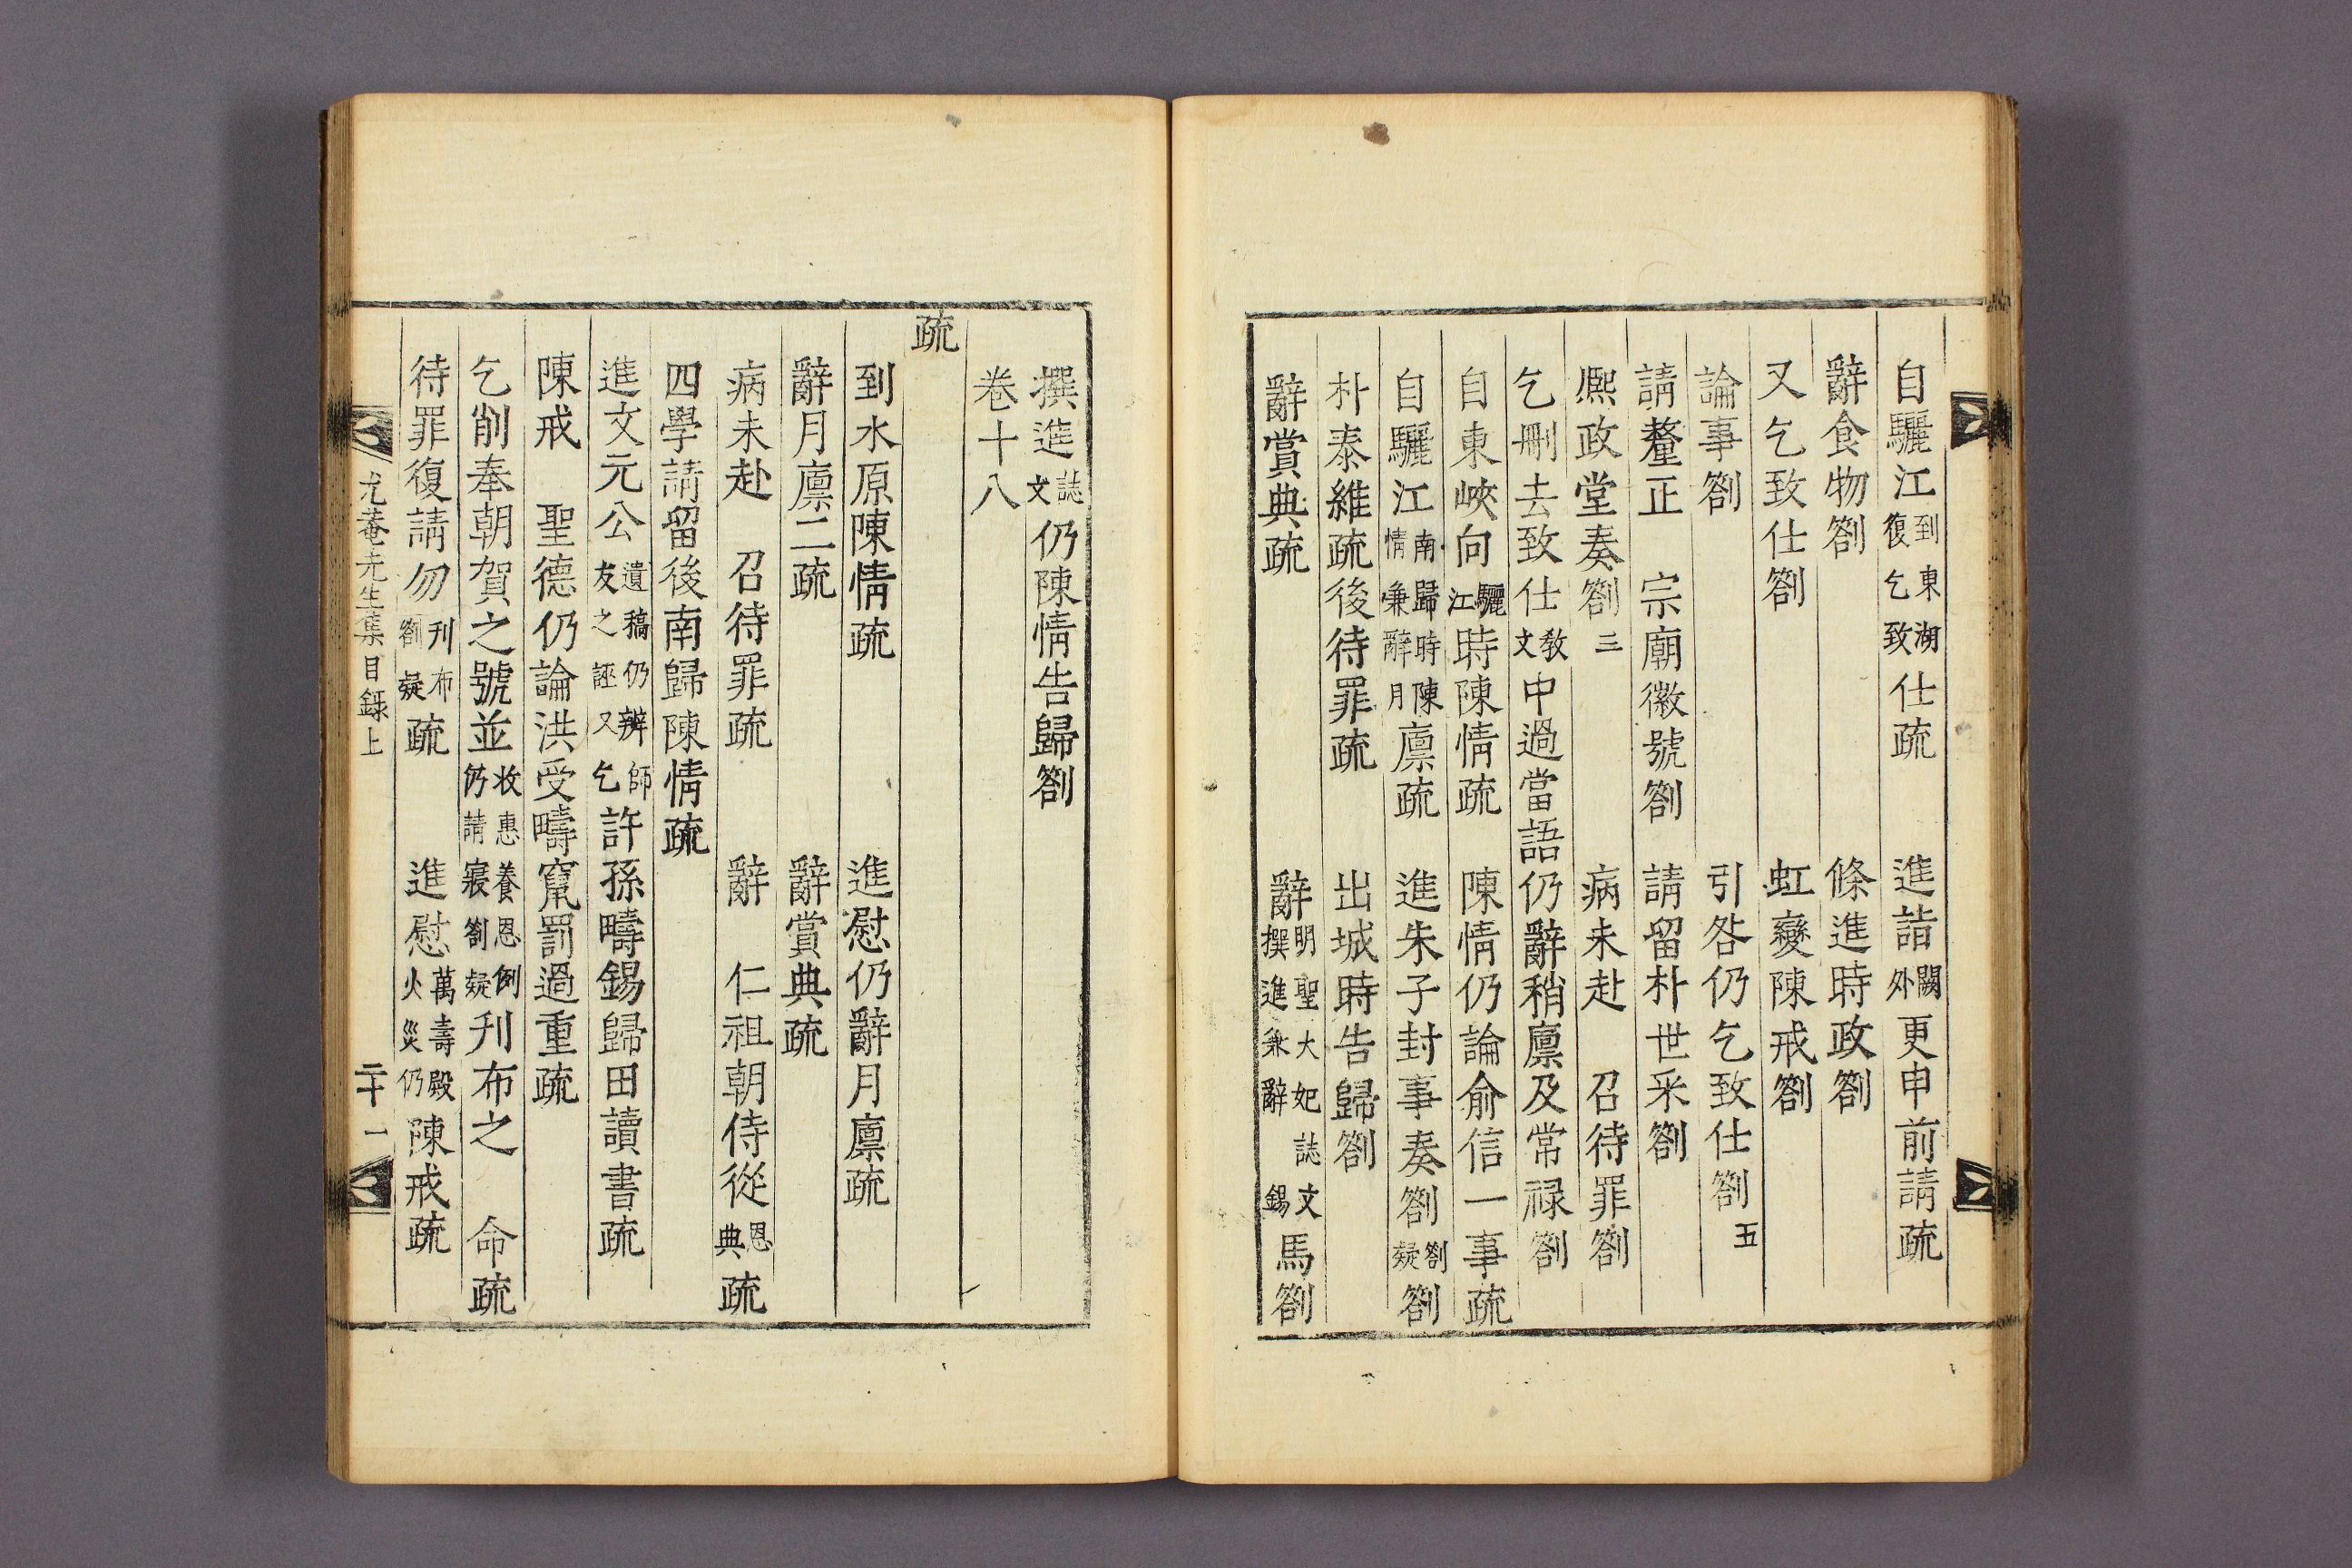 自驪江到東湖復乞致仕疏　進詣闕外更申前請疏
辭食物劄　條進時政劄
又乞致仕劄　虹變陳戒劄
論事劄　引咎仍乞致仕劄五
請釐正　宗廟徽號劄　請留朴世采劄
熙政堂奏劄三　病未赴　召待罪劄
乞刪去致仕教文中過當語仍辭稍廪及常禄劄
自東峽向驪江時陳情疏　陳情仍論俞信一事疏
自驪江南歸時陳情兼辭月廪疏　進朱子封事奏劄劄疑劄
朴泰維疏後待罪疏　出城時告歸劄
辭賞典疏　辭明聖大妃誌文撰進兼辭錫馬劄
撰進誌文仍陳情告歸劄
卷十八
疏
到水原陳情疏　進慰仍辭月廪疏
辭月廪二疏　辭賞典疏
病未赴　召待罪疏　辭　仁祖朝侍從恩典疏
四學請留後南歸陳情疏
進文元公遺稿仍辨師友之誣又乞許孫疇錫歸田讀書疏
陳戒　聖德仍論洪受疇竄罰過重疏
乞削奉朝賀之號並收惠養恩例仍請寢劄疑刋布之　命疏
待罪復請勿刋布劄疑疏　進慰萬壽殿火災仍陳戒疏
尤菴先生集目錄上　二十一